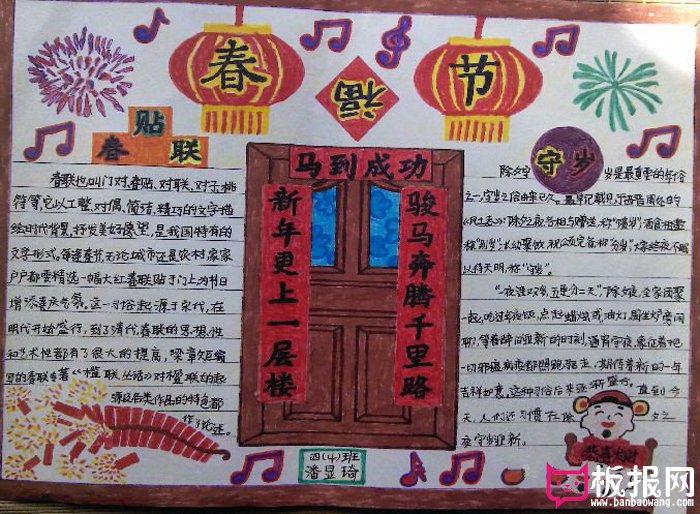 春
节
福
贴
春
联
守
岁
马到成功
新年更上一层楼
骏马奔腾千里路
春联也叫门对、春贴、对联、对子、桃
符等,它以工整、对偶、简洁、精巧的文字描
绘时代背景,抒发美好愿望,是我国特有的
文学形式。每逢春节,无论城市还是农村,家家
户户都要精选一幅大红春联贴于门上,为节日
增添喜庆气氛。这一习俗起源于宋代,在
明代开始盛行,到了清代,春联的思想性
和艺术性都有了很大的提高,梁章矩编
写的春联专著《楹联丛话》对楹联的起
源及各类作品的特色都
作了论述。
除夕守
岁是最重要的年俗
之一,守岁之俗由来已久。最早记载见于西晋周处的
以待天明,称“守岁”。
“一夜连双岁,五更分二天”,除夕夜,全家团聚
一起,吃过年夜饭,点起蜡烛或油灯,围坐炉旁闲
聊,等着辞旧迎新的时刻,通宵守夜,象征着把
一切邪瘟病疫都照跑驱走,期待着新的一年
吉祥如意。这种习俗后来逐渐盛行,直到今
天,人们还习惯在除
夕之
夜守岁迎新。
恭喜发财
四(4)班
潘显琦
板报网
www.banbaowang.com